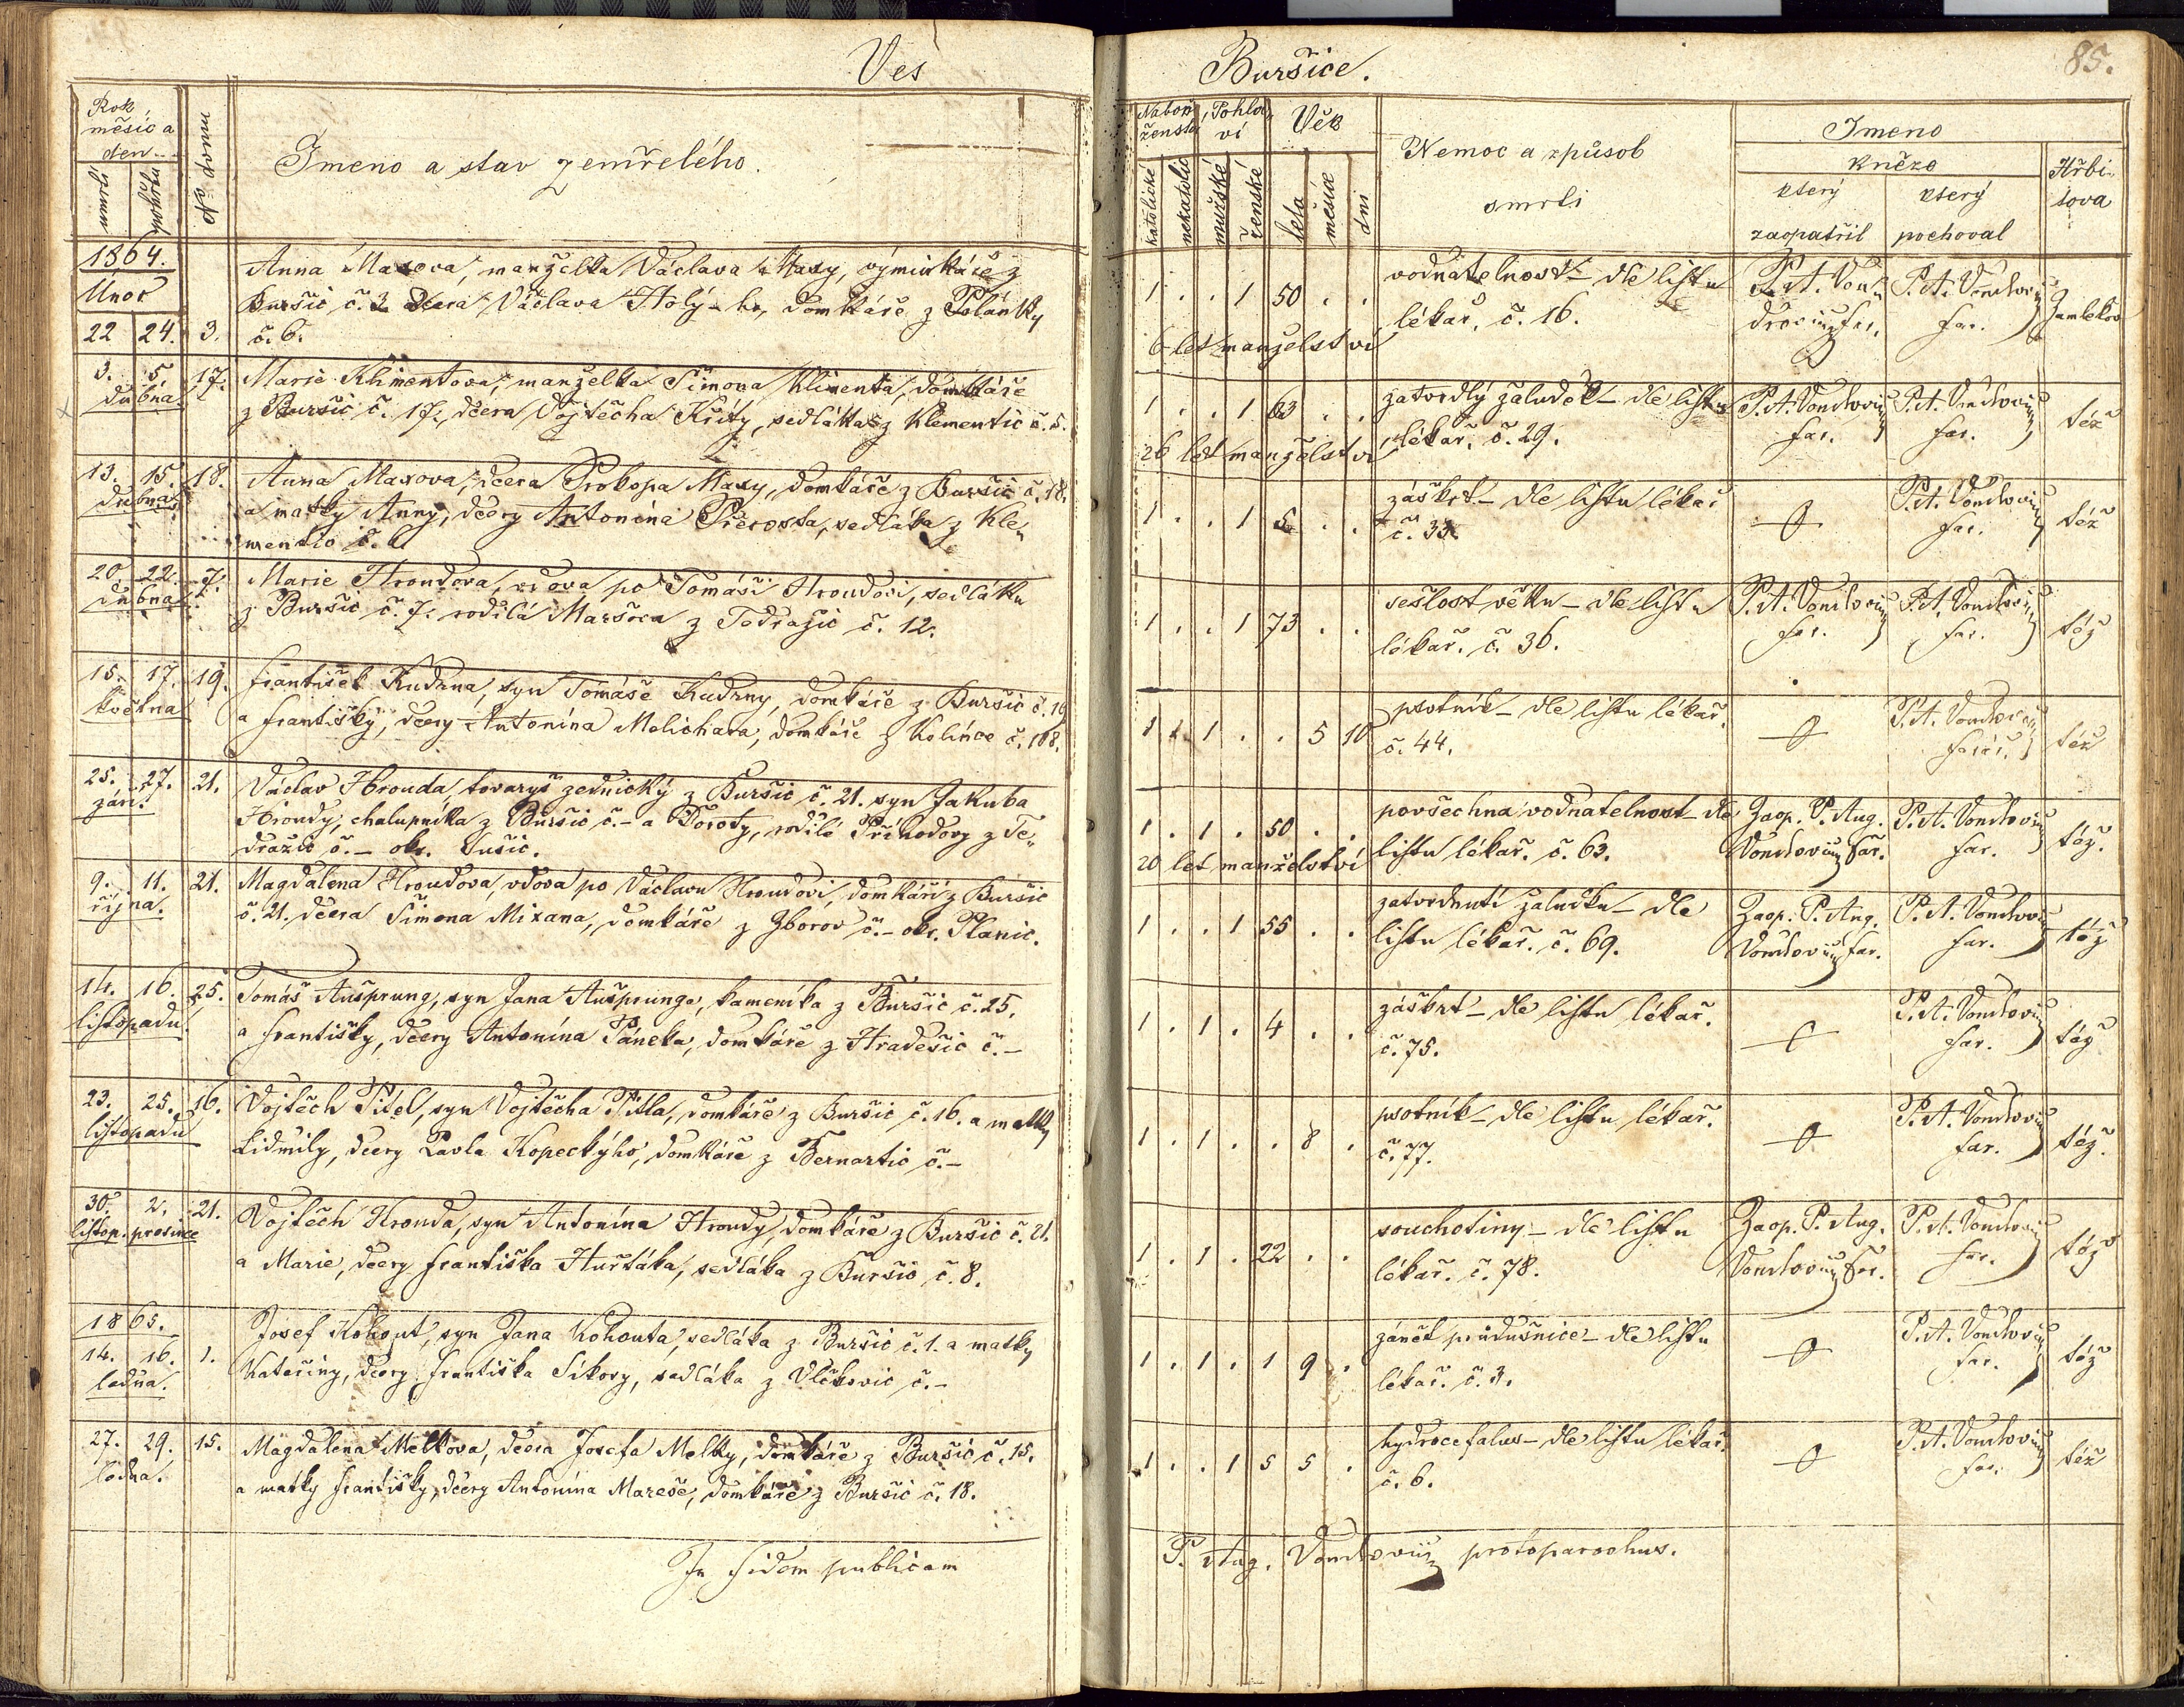 Ves
Buršice.
85.
Rok
měsíc a
den
umrtí
pohřbu
No domu
Jmeno a stav zemřelého.
Nábožženství
Pohlaví
Věk
katolické
nekatolic
mužské
ženské
leta
měsíce
dni
Nemoc a způsob
smrti
Jmeno
kněze
který
zaopatřil
který
pochoval
Hřbitova
1864.
Únor
22 24. 3.
Anna Maxova, manželka Václava Maxy, výminkáře z
Buršic č. 3 dcera Václava Holý-ho, domkáře z Polánky
č. 6.
1 . . 1 50 . .
6 let manželství
vodnatelnost – dle listu
lékař. č. 16.
P. A. Von
far.
P. A. Vondrovic
far.
Zamlekov
3. 5. 17.
dubna
Marie Klimentova, manželka Šimona Klimenta, domkáře
z Buršic č. 17., dcera Vojtěcha Křity, sedláka z Klementic č. 5.
1 . . 1 63 . .
26 let manželství
zatvrdlý žaludek – dle listu
lékař. č. 29.
P. A. Vondrovic
far.
P. A. Vondrovic
far.
též
13. 15. 18.
dubna
Anna Maxova, dcera Prokopa Maxy, domkáře z Buršic č. 18.
a matky Anny, dcery Antonína Přerosta, sedláka z Kle„
mentic č.
1 . . 1 5 . .
záškrt – dle listu lékař
č. 33.
P. A. Vondrovic
far.
též
20 22. 7.
dubna
Marie Hroudova, vdova po Tomáši Hroudovi, sedláku
z Buršic č. 7. rodilá Maršova z Tedražic č. 12.
1 . . 1 73 . .
sešlost věku – dle listu
lékař. č. 36.
P. A. Vondrovic
far.
P. A. Vondrovic
far.
též
15. 17. 19.
května
František Kudrna, syn Tomáše Kudrny, domkáře z Buršic č. 19
a Františky, dcery Antonína Melichara, domkáře z Kolínce č. 108.
1 . 1 . . 5 10
psotník – dle listu lékař.
č. 44.
P. A. Vondrovic
far.
též
25. 27. 21.
září.
Václav Hrouda, tovaryš zednický z Buršic č. 21. syn Jakuba
Hroudy, chalupníka z Buršic č. – a Doroty, rodilé Příhodovy z Te„
dražic č. – okr. Sušic.
1 . 1 . 50 . .
20 let manželství
povšechna vodnatelnost – dle
listu lékař. č. 63.
Zaop. P. Aug.
Vondrovic far.
P. A. Vondrovic
far.
též.
9. 11. 21.
října.
Magdalena Hroudova, vdova po Václavu Hroudovi, domkáři z Buršic
č. 21. dcera Šimona Mixana, domkáře z Zborov č. – okr. Planic.
1 . . 1 55 . .
zatvrdnutí žaludku – dle
listu lékař. č. 69.
Zaop. P. Aug.
Vondrovic far.
P. A. Vondrovic
far.
též
14. 16. 25.
listopadu
Tomáš Aušprung, syn Jana Aušprunga, kameníka z Buršic č. 25.
a Františky, dcery Antonína Páneka, domkáře z Hradešic č. –
1 . 1 . 4 . .
záškrt – dle listu lékař.
č. 75.
P. A. Vondrovic
far.
též
23. 25. 16.
listopadu
Vojtěch Pitel, syn Vojtěcha Pitla, domkáře z Buršic č. 16. a matky
Lidmily, dcery Pavla Kopeckýho, domkáře z Bernartic č. –
1 . 1 . . 8 .
psotník – dle listu lékař.
č. 77.
P. A. Vondrovic
far.
též.
30. 2. 21.
listop. prosince
Vojtěch Hrouda, syn Antonína Hroudy domkáře z Buršic č. 21.
a Marie, dcery Františka Huřťáka, sedláka z Buršic č. 8.
1 . 1 . 22 . .
souchotiny – dle listu
lékař. č. 78.
Zaop. P. Aug.
Vondrovic far.
P. A. Vondrovic
far.
též
1865.
14. 16. 1.
ledna.
Josef Kohout, syn Jana Kohouta, sedláka z Buršic č. 1. a matky
Kateřiny, dcery Františka Sikory, sedláka z Vlčkovic č. –
1 . 1 . 1 9 .
zánět průdušnice – dle listu
lékař. č. 3.
P. A. Vondrovic
far.
též
27. 29. 15.
ledna.
Magdalena Melkova, dcera Josefa Melky, domkáře z Buršic č. 15.
a matky Františky, dcery Antonína Mareše, domkáře z Buršic č. 18.
1 . . 1 5 5 .
hydrocefalus – dle listu lékař.
č. 6.
P. A. Vondrovic
far.
též
In fidem publicam
P. Aug. Vondrovic protoparochus.